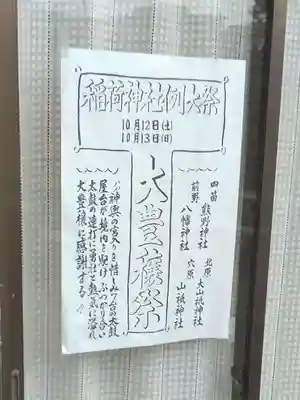 稲荷神社例大祭
10月12日(土)
10月13日(日)
大豊穣祭
四苗 熊野神社
前野 八幡神社
北原 大山祇神社
穴原 山祇神社
神輿の宮入りを惜しみ7台の太鼓
屋台が境内を駆けぶつかり合い
太鼓の連打に男壮と熱気に溢れ
大豊様に感謝する